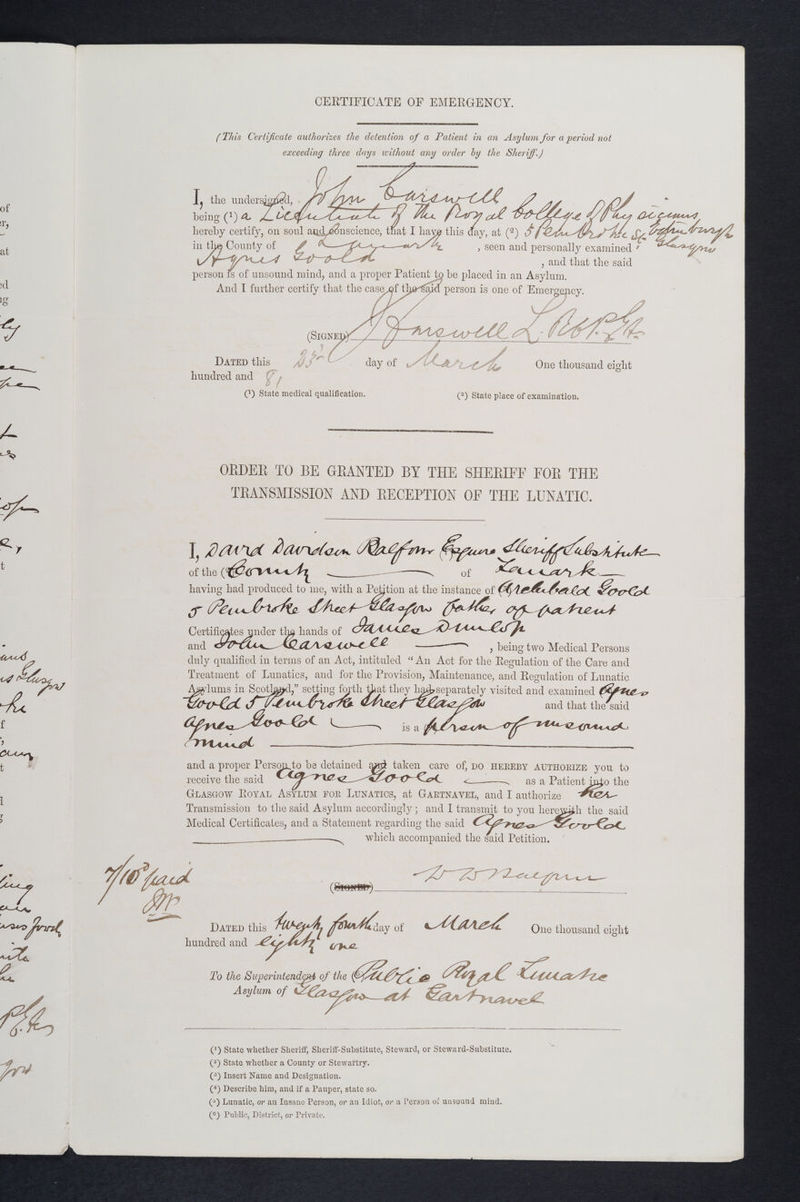 CERTIFICATE OF EMERGENCY.
(This Certificate authorizes the detention of a Patient in an Asylum for a period not
exceeding three days without any order by the Sheriff.)
I, the undersigned, John Carswell
being (1) a Licentiate of the Royal College of Physicians
hereby certify, on soul and conscience, that I have this day, at (2) 5 Pembroke St Edinburgh
Glasgow
in the County of Lanark , seen and personally examined
Agnes Goold , and that the said
person is of unsound mind, and a proper Patient to be placed in an Asylum.
And I further certify that the case of the said person is one of Emergency.
(SIGNED) J Carswell L.R.C.P. Ed.
DATED this 23d day of March One thousand eight
hundred and 81
(1) State medical qualification. (2) State place of examination.
ORDER TO BE GRANTED BY THE SHERIFF FOR THE
TRANSMISSION AND RECEPTION OF THE LUNATIC.
I, David Davidson Balfour Esquire Sheriff Substitute
of the County of Lanark
having had produced to me, with a Petition at the instance of Archibald Goold
5 Pembroke Street Glasgow father of patient
Certificates under the hands of James Dunlop
and John Carswell , being two Medical Persons
duly qualified in terms of an Act, intituled "An Act for the Regulation of the Care and
Treatment of Lunatics, and for the Provision, Maintenance, and Regulation of Lunatic
Asylums in Scotland," setting forth that they had separately visited and examined Agnes
Goold 5 Pembroke Street Glasgow and that the said
Agnes Goold is a person of unsound
mind
and a proper Person to be detained and taken care of, DO HEREBY AUTHORIZE you to
receive the said Agnes Goold as a Patient into the
GLASGOW ROYAL ASYLUM FOR LUNATICS, at GARTNAVEL, and I authorize her
Transmission to the said Asylum accordingly; and I transmit to you herewith the said
Medical Certificates, and a Statement regarding the said Agnes Goold
which accompanied the said Petition.
7/10 paid
(SIGNED) D D Balfour
DATED this twenty fourth day of March One thousand eight
hundred and eighty one
To the Superintendent of the Public Royal Lunatic
Asylum of Glasgow at Gartnavel
(1) State whether Sheriff, Sheriff-Substitute, Steward, or Steward-Substitute.
(2) State whether a County or Stewartry.
(3) Insert Name and Designation.
(4) Describe him, and if a Pauper, state so.
(5) Lunatic, or an Insane Person, or an Idiot, or a Person of unsound mind.
(6) Public, District, or Private.